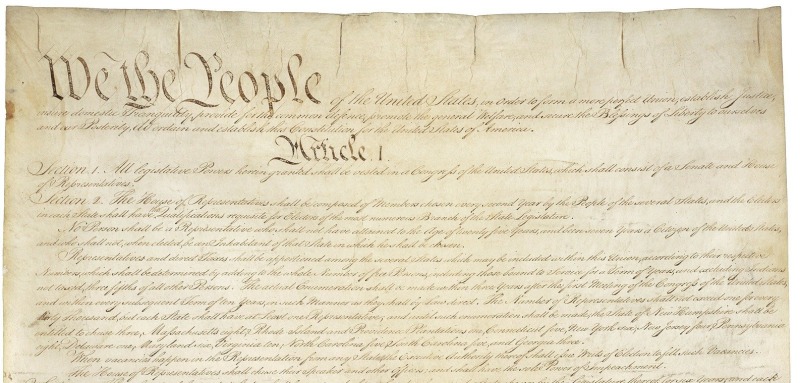 We the People of the United States, in Order to form a more perfect Union, establish Justice,
insure domestic Tranquility, provide for the common defence, promote the general Welfare, and secure the Blessings of Liberty to ourselves
and our Posterity, do ordain and establish this Constitution for the United States of America.
Article. I.
Section. 1. All legislative Powers herein granted shall be vested in a Congress of the United States, which shall consist of a Senate and House
of Representatives.
Section. 2. The House of Representatives shall be composed of Members chosen every second Year by the People of the several States, and the Electors
in each State shall have Qualifications requisite for Electors of the most numerous Branch of the State Legislature.
No Person shall be a Representative who shall not have attained to the Age of twenty five Years, and been seven Years a Citizen of the United States,
and who shall not, when elected, be an Inhabitant of that State in which he shall be chosen.
Representatives and direct Taxes shall be apportioned among the several States which may be included within this Union, according to their respective
Numbers, which shall be determined by adding to the whole Number of free Persons, including those bound to Service for a Term of Years, and excluding Indians
not taxed, three fifths of all other Persons. The actual Enumeration shall be made within three Years after the first Meeting of the Congress of the United States,
and within every subsequent Term of ten Years, in such Manner as they shall by Law direct. The Number of Representatives shall not exceed one for every
thirty Thousand, but each State shall have at Least one Representative; and until such enumeration shall be made, the State of New Hampshire shall be
entitled to chuse three, Massachusetts eight, Rhode Island and Providence Plantations one, Connecticut five, New York six, New Jersey four, Pennsylvania
eight, Delaware one, Maryland six, Virginia ten, North Carolina five, South Carolina five, and Georgia three.
When vacancies happen in the Representation from any State, the Executive Authority thereof shall issue Writs of Election to fill such Vacancies.
The House of Representatives shall chuse their Speaker and other Officers; and shall have the sole Power of Impeachment.